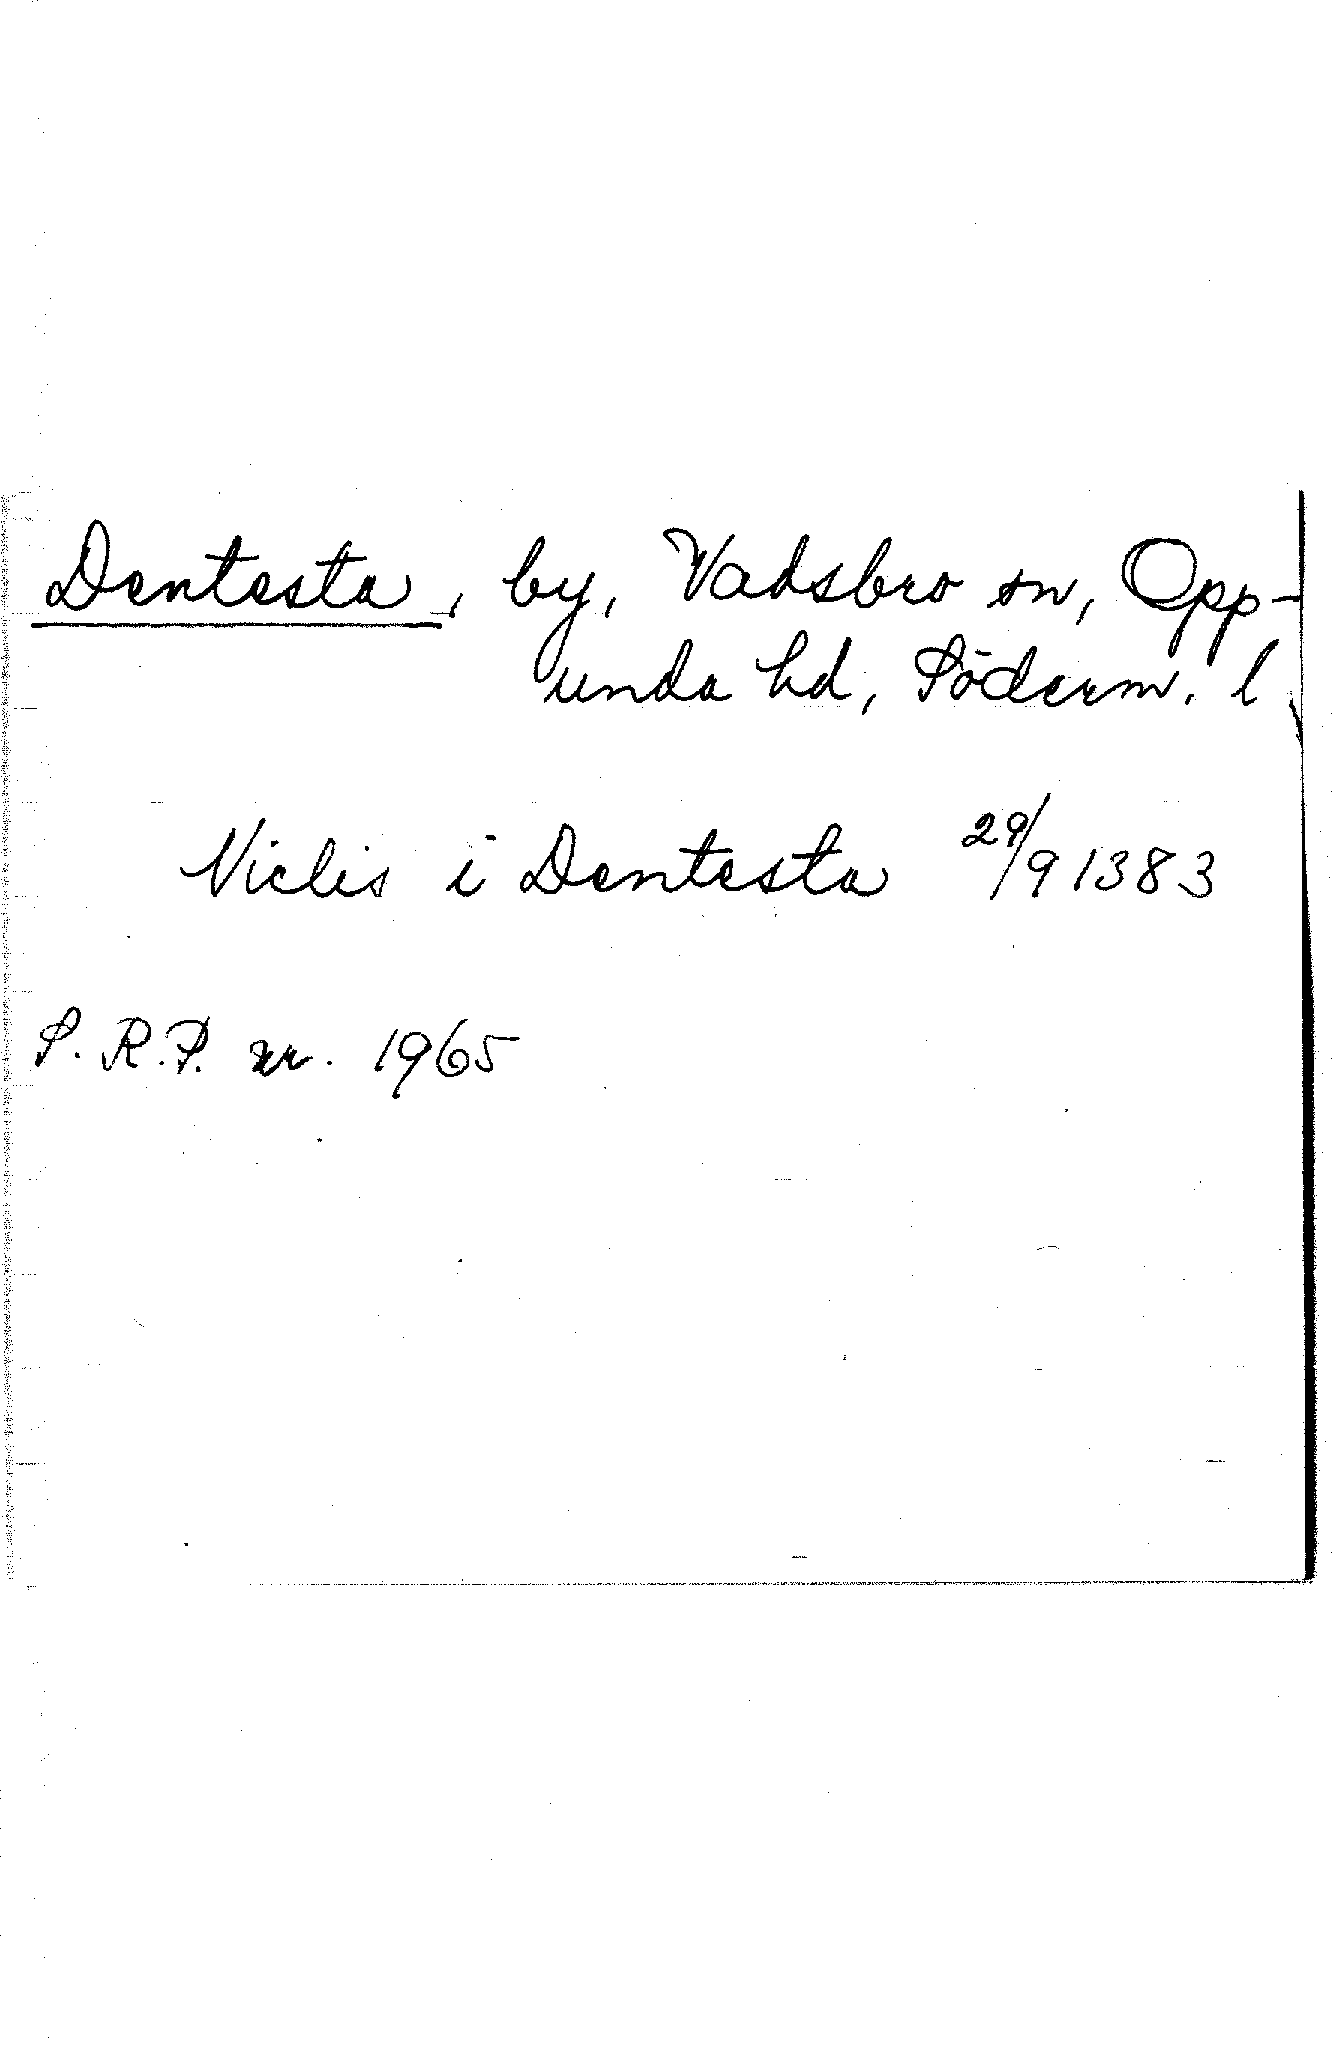 Dentesta, by, Vadsbro sn, Opp-
unda hd, Söderm. l
Niclis i Dentesta 29/9 1383
S.R.P. nr. 1965